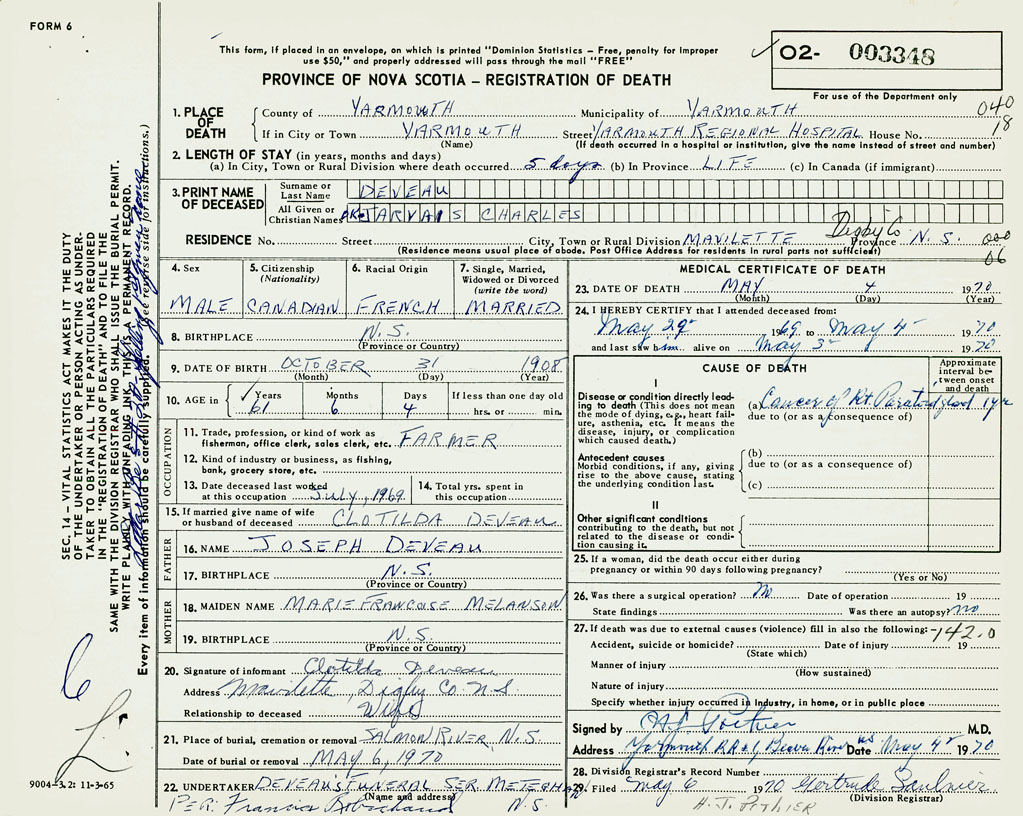 FORM 6
This form, if placed in an envelope, on which is printed "Dominion Statistics – Free, penalty for improper
use $50," and properly addressed will pass through the mail "FREE"
PROVINCE OF NOVA SCOTIA – REGISTRATION OF DEATH
O2- 003348
For use of the Department only
1. PLACE OF DEATH
County of YARMOUTH Municipality of YARMOUTH 040
If in City or Town YARMOUTH Street YARMOUTH REGIONAL HOSPITAL House No. 18
(Name) (If death occurred in a hospital or institution, give the name instead of street and number)
2. LENGTH OF STAY (in years, months and days)
(a) In City, Town or Rural Division where death occurred 5 days (b) In Province LIFE (c) In Canada (if immigrant)
3. PRINT NAME OF DECEASED
Surname or Last Name DEVEAU
All Given or Christian Names JARVAIS CHARLES
RESIDENCE No. Street City, Town or Rural Division MAVILETTE Digby Co Province N. S. 000
(Residence means usual place of abode. Post Office Address for residents in rural parts not sufficient) 06
4. Sex MALE
5. Citizenship (Nationality) CANADIAN
6. Racial Origin FRENCH
7. Single, Married, Widowed or Divorced (write the word) MARRIED
8. BIRTHPLACE N. S.
(Province or Country)
9. DATE OF BIRTH OCTOBER 31 1908
(Month) (Day) (Year)
10. AGE in Years 61 Months 6 Days 4 If less than one day old hrs. or min.
OCCUPATION
11. Trade, profession, or kind of work as fisherman, office clerk, sales clerk, etc. FARMER
12. Kind of industry or business, as fishing, bank, grocery store, etc.
13. Date deceased last worked at this occupation July, 1969
14. Total yrs. spent in this occupation
15. If married give name of wife or husband of deceased CLOTILDA DEVEAU
FATHER
16. NAME JOSEPH DEVEAU
17. BIRTHPLACE N. S.
(Province or Country)
MOTHER
18. MAIDEN NAME MARIE FRANCOISE MELANSON
19. BIRTHPLACE N. S.
(Province or Country)
20. Signature of informant Clotilda Deveau
Address Mavilette, Digby Co. N S
Relationship to deceased Wife
21. Place of burial, cremation or removal SALMON RIVER, N. S.
Date of burial or removal MAY 6, 1970
22. UNDERTAKER DEVEAU'S FUNERAL SER METEGHAN
(Name and address) N. S.
PER: Francis
MEDICAL CERTIFICATE OF DEATH
23. DATE OF DEATH MAY 4 1970
(Month) (Day) (Year)
24. I HEREBY CERTIFY that I attended deceased from:
May 29 1969 to May 4 1970
and last saw him alive on May 3 1970
CAUSE OF DEATH
Approximate interval between onset and death
I
Disease or condition directly leading to death (This does not mean the mode of dying, e.g., heart failure, asthenia, etc. It means the disease, injury, or complication which caused death.)
(a) Cancer of Rt. Parotid gland 1 yr
due to (or as a consequence of)
Antecedent causes
Morbid conditions, if any, giving rise to the above cause, stating the underlying condition last.
(b)
due to (or as a consequence of)
(c)
II
Other significant conditions
contributing to the death, but not related to the disease or condition causing it.
25. If a woman, did the death occur either during pregnancy or within 90 days following pregnancy?
(Yes or No)
26. Was there a surgical operation? no Date of operation 19
State findings Was there an autopsy? no
27. If death was due to external causes (violence) fill in also the following: -142.0
Accident, suicide or homicide? Date of injury 19
(State which)
Manner of injury
(How sustained)
Nature of injury
Specify whether injury occurred in industry, in home, or in public place
Signed by M.D.
Address Yarmouth RR#1, Beaver River NS Date May 4 1970
28. Division Registrar's Record Number
29. Filed May 6 1970 Gertrude Saulnier
(Division Registrar)
H. J. POTHIER
SEC. 14 – VITAL STATISTICS ACT MAKES IT THE DUTY
OF THE UNDERTAKER OR PERSON ACTING AS UNDER-
TAKER TO OBTAIN ALL THE PARTICULARS REQUIRED
IN THE "REGISTRATION OF DEATH" AND TO FILE THE
SAME WITH THE DIVISION REGISTRAR WHO SHALL ISSUE THE BURIAL PERMIT.
WRITE PLAINLY WITH UNFADING INK THIS IS A PERMANENT RECORD.
Every item of information should be carefully supplied. (See reverse side for instructions.)
9004-3.2: 11-3-65